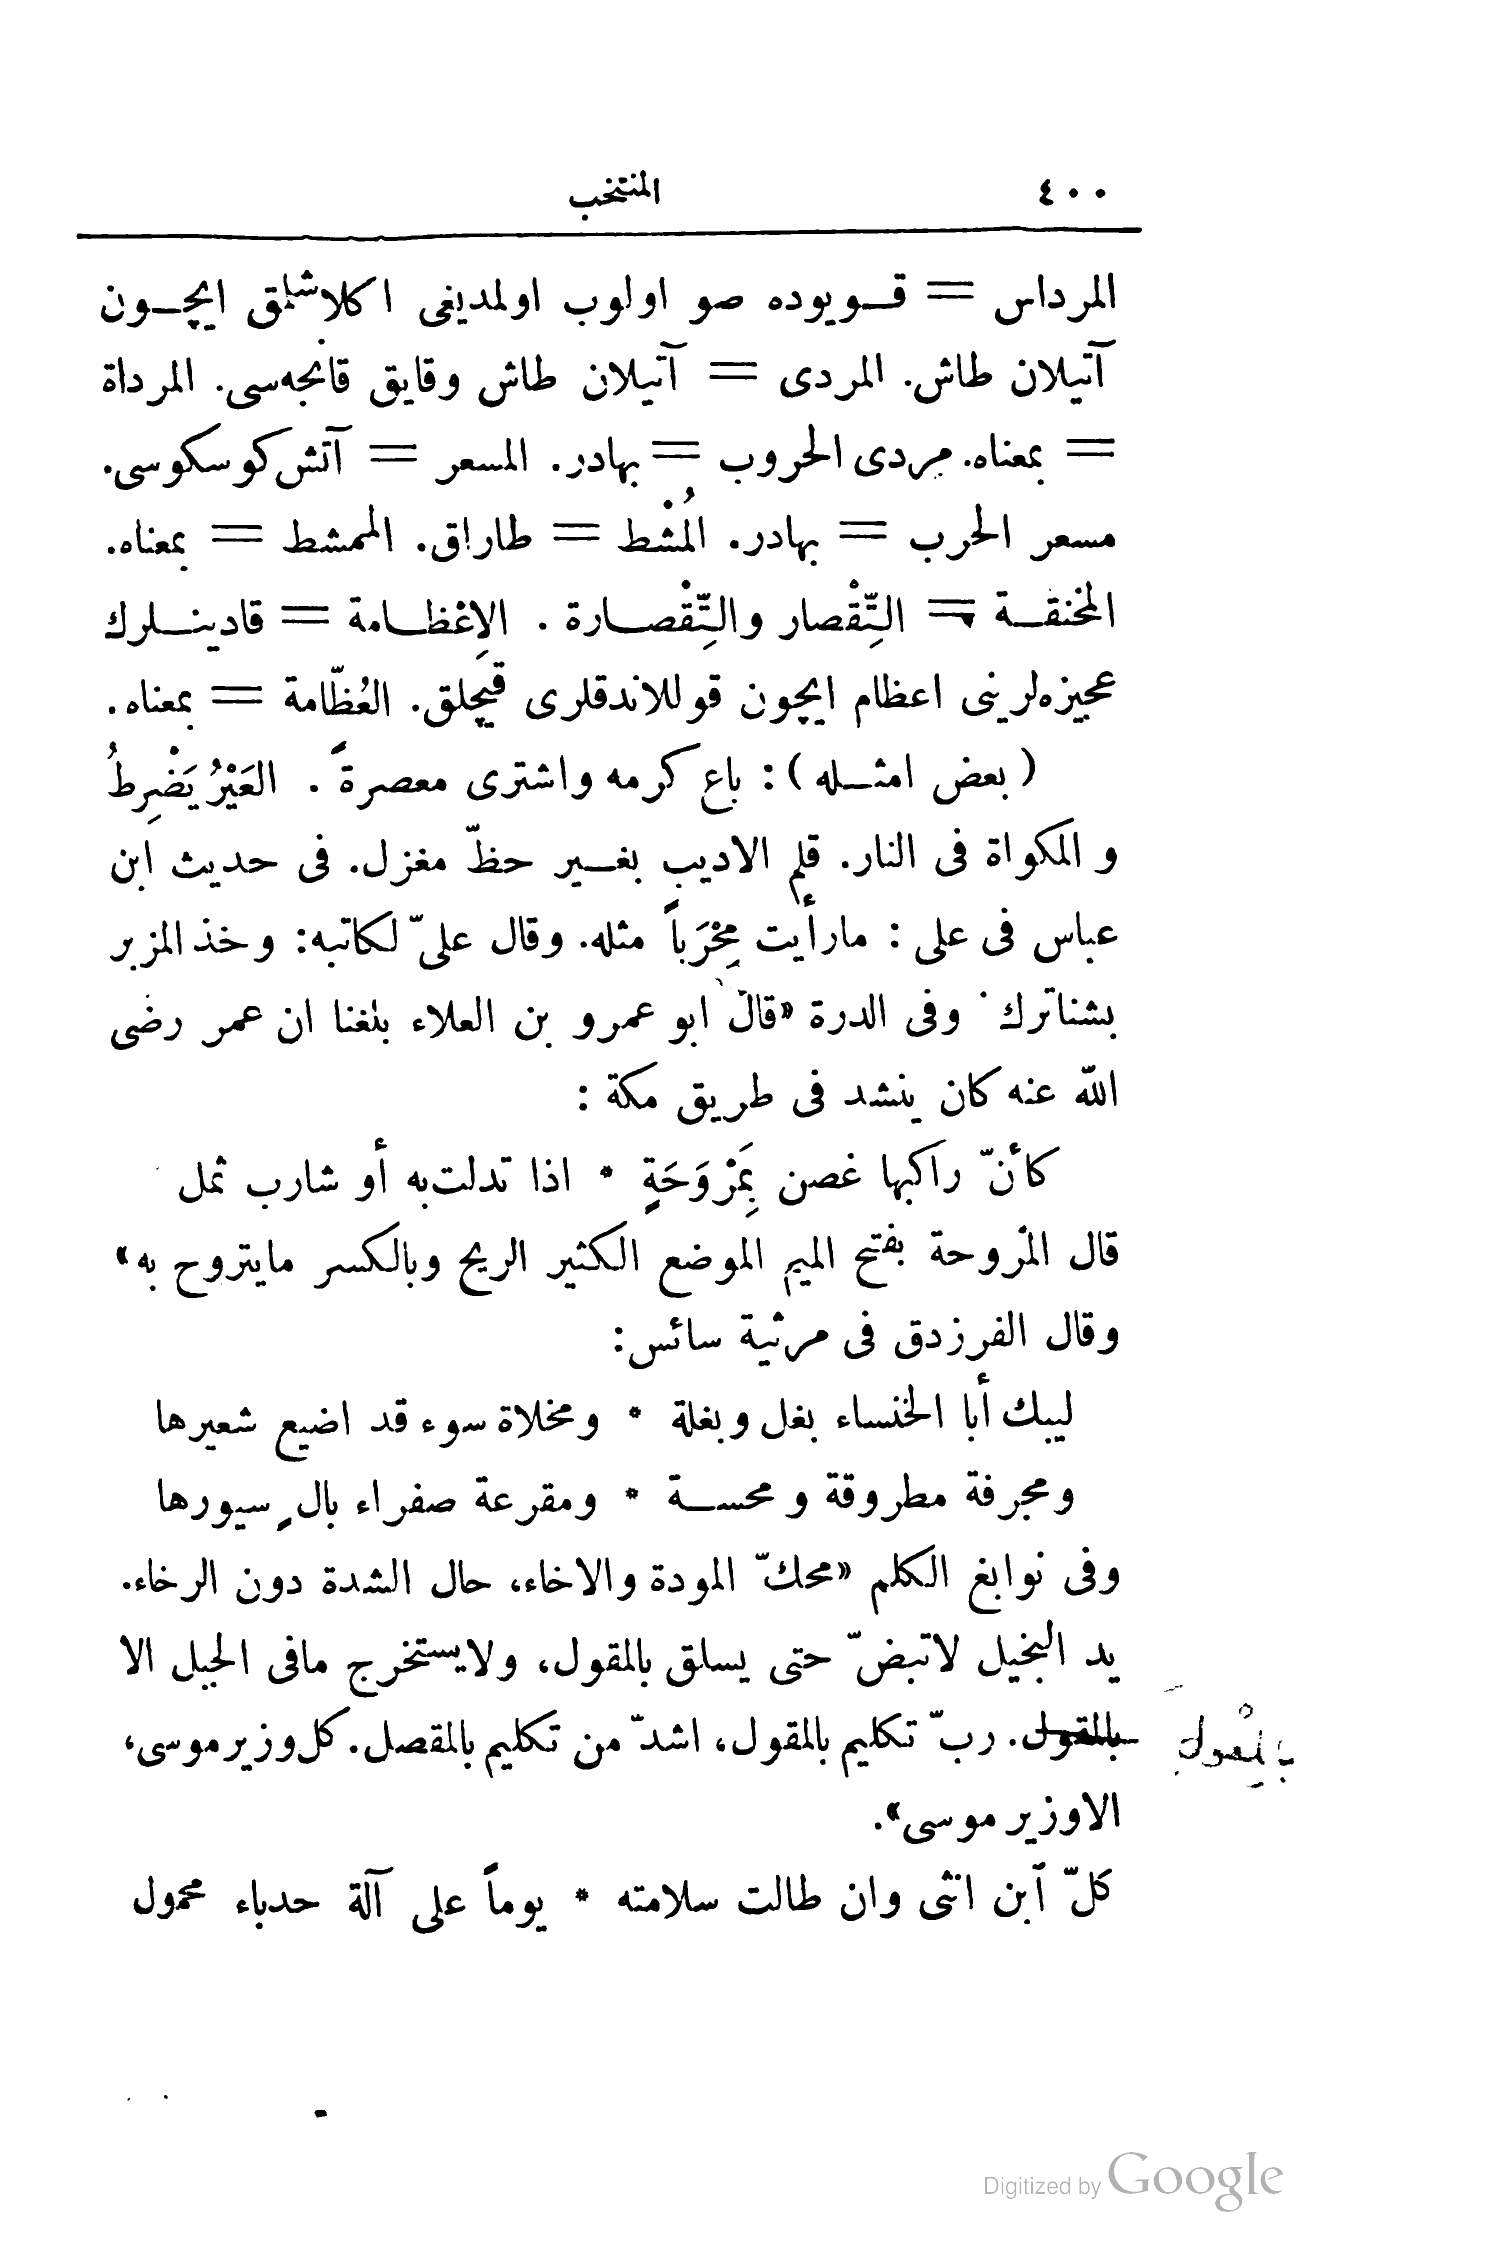 ٤٠٠ المنتخب
المرداس = قـويوده صو اولوب اولمديغى اكلاشلمق ايچـون
آتيلان طاش. المردى = آتيلان طاش وقايق قانجه‌سى. المرداة
= بمعناه. مردى الحروب = بهادر. المسعر = آتش كوسكوسى.
مسعر الحرب = بهادر. المُشْط = طاراق. الممشط = بمعناه.
المخنقـة = التِّقْصار والتِّقْصـارة . الاِعْظـامة = قادينـلرك
عجيزه‌لرينى اعظام ايچون قوللاندقلرى قيچلق. العُظّامة = بمعناه.
(بعض امثـله): باع كرمه واشترى معصرةً . العَيْرُ يَضْرِطُ
و المكواة فى النار. قلم الاديب بغـير حظّ مغزل. فى حديث ابن
عباس فى على : مارأيت مِحْرَباً مثله. وقال علىّ لكاتبه: وخذ المزبر
بشناترك. وفى الدرة «قال ابو عمرو بن العلاء بلغنا ان عمر رضى
الله عنه كان ينشد فى طريق مكة :
كأنّ راكبها غصن بِمَرْوَحَةٍ * اذا تدلت به أو شارب ثمل
قال المَروحة بفتح الميم الموضع الكثير الريح وبالكسر مايتروح به»
وقال الفرزدق فى مرثية سائس:
ليبك أبا الخنساء بغل وبغلة * ومخلاة سوء قد اضيع شعيرها
ومجرفة مطروقة و محسـة * ومقرعة صفراء بالٍ سيورها
وفى نوابغ الكلم «محكّ المودة والاخاء، حال الشدة دون الرخاء.
يد البخيل لاتبضّ حتى يسلق بالمقول، ولايستخرج مافى الجبل الا
بالمقول. ربّ تكليم بالمقول، اشدّ من تكليم بالمقصل. كل وزير موسى،
بالمِعْول
الاوزير موسى».
كلّ ٱبن انثى وان طالت سلامته * يوماً على آلة حدباء محمول
Digitized by Google